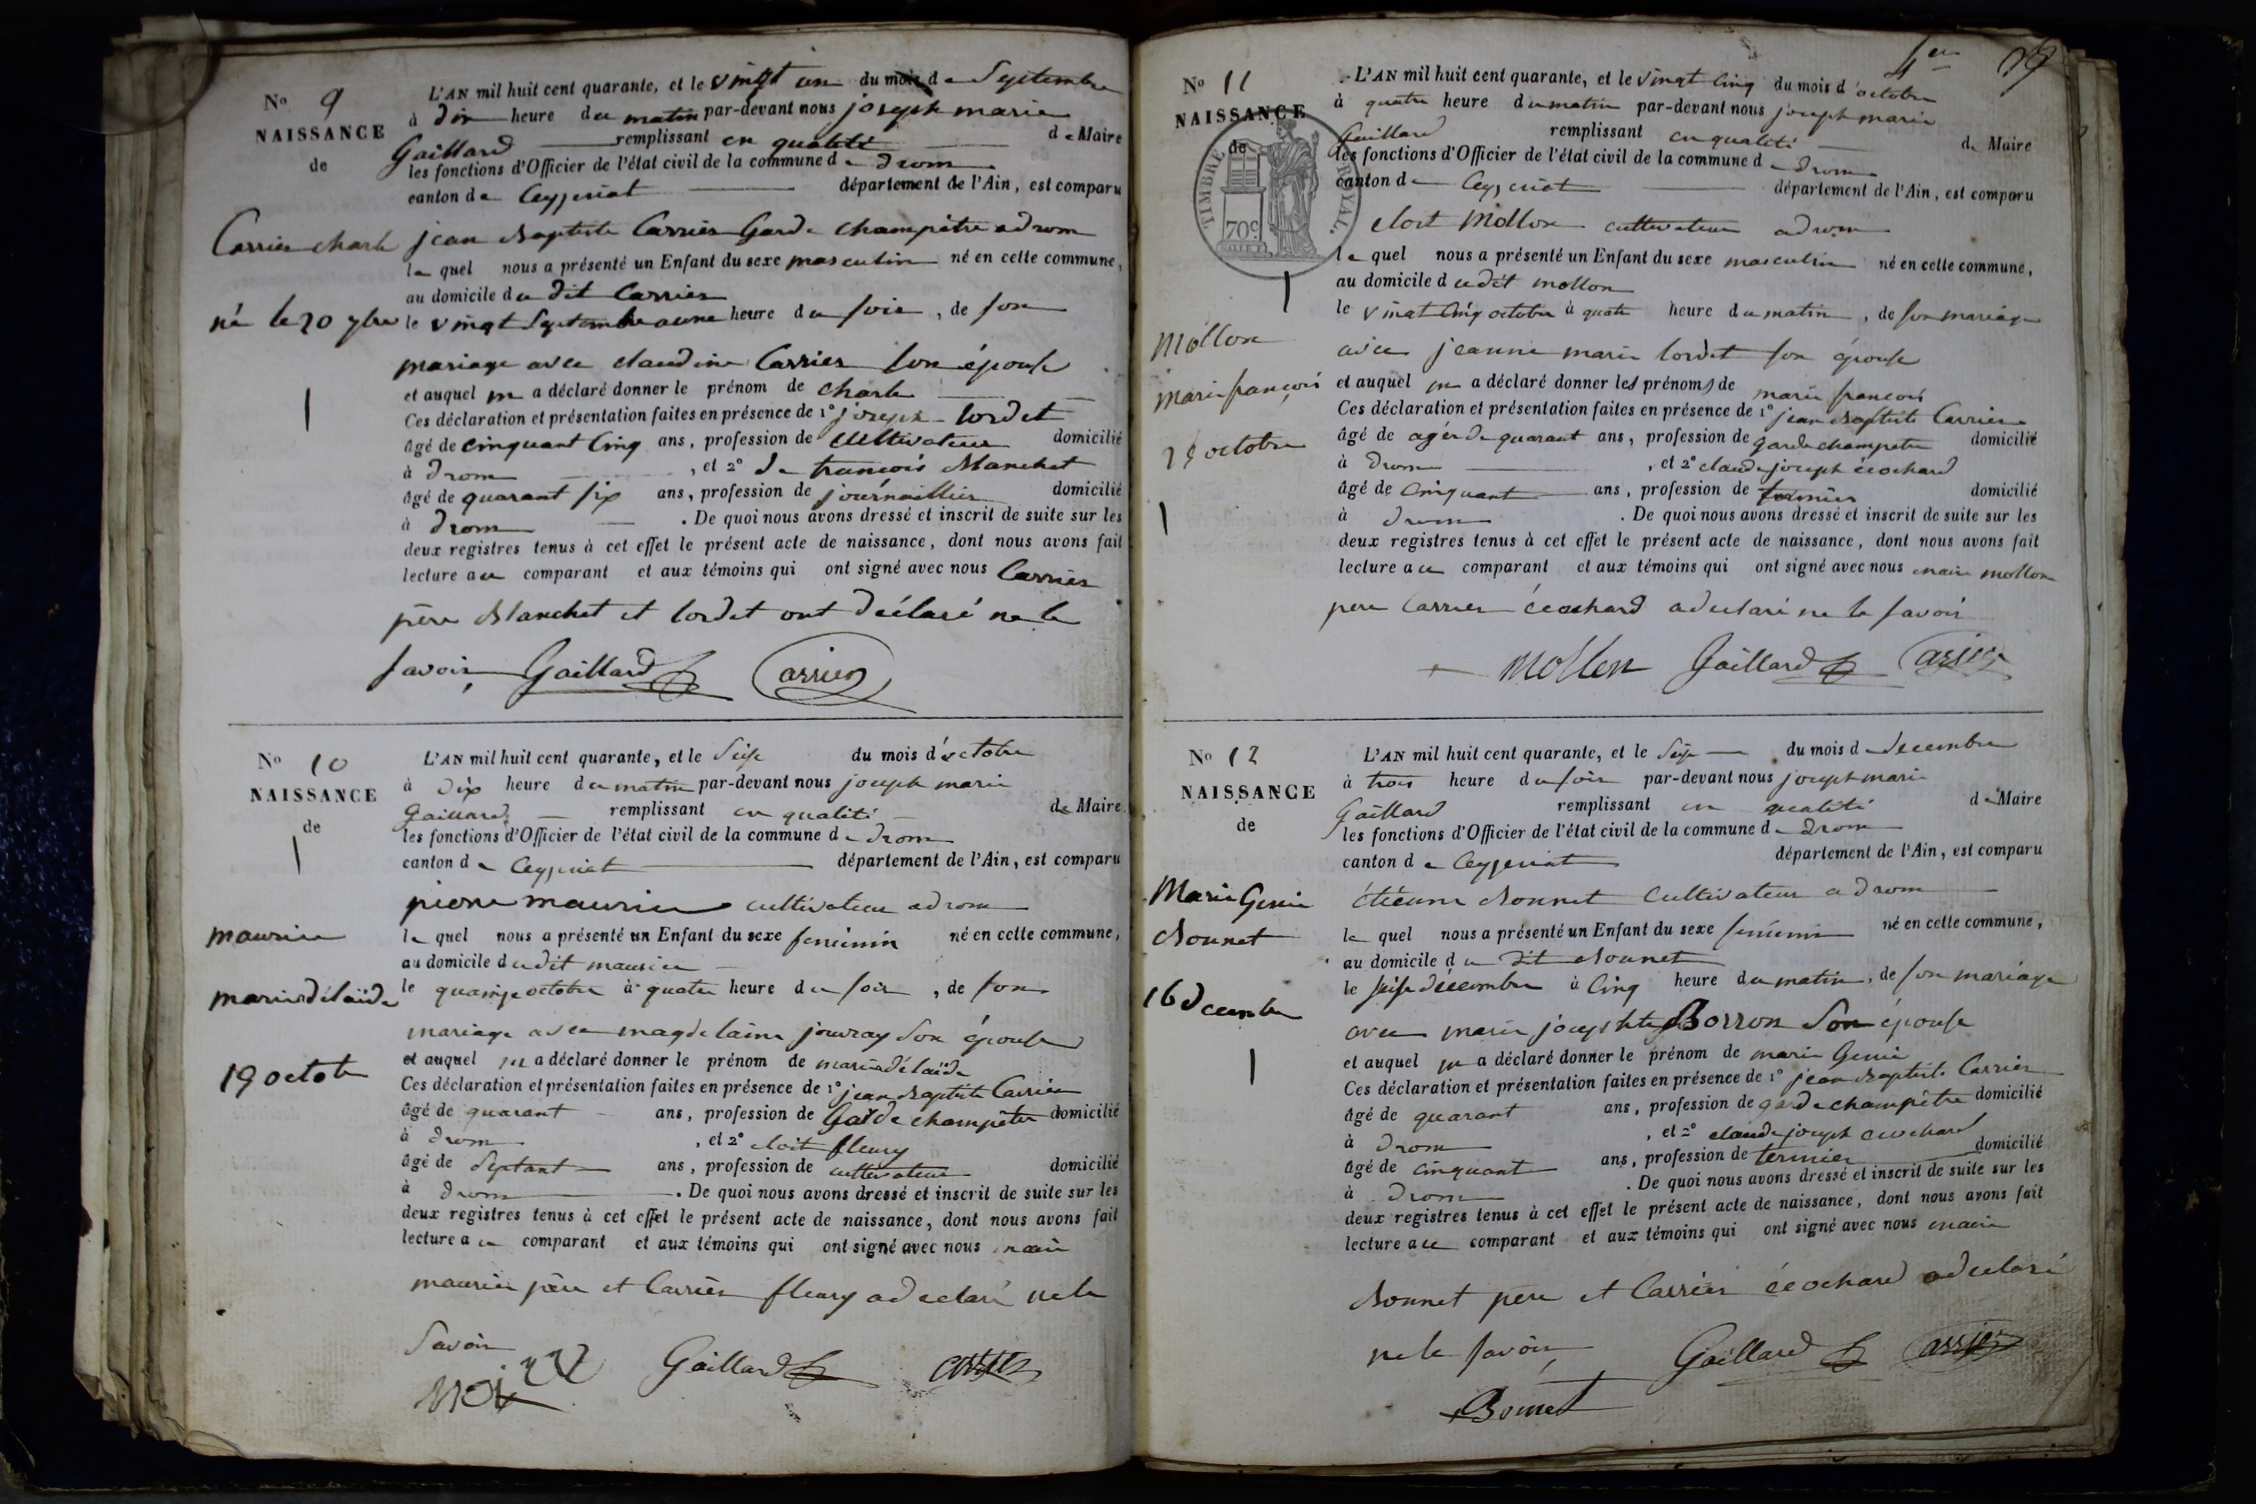 No 9
NAISSANCE
de
Carrier charle
né le 20 7bre
L'AN mil huit cent quarante, et le vingt un du mois de Septembre
à dix heure du matin par-devant nous joseph marie
Gaillard remplissant en qualité de Maire
les fonctions d'Officier de l'état civil de la commune de drom
canton de Ceyzeriat département de l'Ain, est comparu
jean Baptiste Carrier Garde champêtre a drom
le quel nous a présenté un Enfant du sexe masculin né en cette commune,
au domicile du dit Carrier
le vingt Septembre a une heure du soir, de son
mariage avec claudine Carrier son épouse
et auquel il a déclaré donner le prénom de charle
Ces déclaration et présentation faites en présence de 1° joseph lordet
âgé de cinquant cinq ans, profession de cultivateur domicilié
à drom, et 2° de francois Blanchet
âgé de quarant six ans, profession de journaillier domicilié
à drom. De quoi nous avons dressé et inscrit de suite sur les
deux registres tenus à cet effet le présent acte de naissance, dont nous avons fait
lecture au comparant et aux témoins qui ont signé avec nous Carrier
père Blanchet et lordet ont déclaré ne le
savoir Gaillard Carrier
No 10
NAISSANCE
de
maurier
marie délaïde
19 octob
L'AN mil huit cent quarante, et le Seise du mois d'octobre
à dix heure du matin par-devant nous joseph marie
Gaillard remplissant en qualité de Maire
les fonctions d'Officier de l'état civil de la commune de drom
canton de Ceyzeriat département de l'Ain, est comparu
pierre maurier cultivateur a drom
le quel nous a présenté un Enfant du sexe feminin né en cette commune,
au domicile du dit maurier
le quainze octobre à quatre heure du soir, de son
mariage avec magdelaine jouvray son épouse
et auquel il a déclaré donner le prénom de marie délaïde
Ces déclaration et présentation faites en présence de 1° jean Baptiste Carrier
âgé de quarant ans, profession de Garde champêtre domicilié
à drom, et 2° cloit fleury
âgé de Septant ans, profession de cultivateur domicilié
à drom. De quoi nous avons dressé et inscrit de suite sur les
deux registres tenus à cet effet le présent acte de naissance, dont nous avons fait
lecture au comparant et aux témoins qui ont signé avec nous maire
maurier père et Carrier fleury a declaré ne le
Savoir
Gaillard
No 11
NAISSANCE
de
TIMBRE ROYAL
70c
mollon
marie françois
25 octobre
L'AN mil huit cent quarante, et le vingt cinq du mois d'octobre
à quatre heure du matin par-devant nous joseph marie
Gaillard remplissant en qualité de Maire
les fonctions d'Officier de l'état civil de la commune de drom
canton de Ceyzeriat département de l'Ain, est comparu
cloit Mollon cultivateur a drom
le quel nous a présenté un Enfant du sexe masculin né en cette commune,
au domicile du dit mollon
le vingt cinq octobre à quatre heure du matin, de son mariage
avec jeanne marie lordet son épouse
et auquel il a déclaré donner les prénoms de marie francois
Ces déclaration et présentation faites en présence de 1° jean Baptiste Carrier
âgé de agér de quarant ans, profession de garde champetre domicilié
à drom, et 2° claude joseph écochard
âgé de cinquant ans, profession de fermier domicilié
à drom. De quoi nous avons dressé et inscrit de suite sur les
deux registres tenus à cet effet le présent acte de naissance, dont nous avons fait
lecture au comparant et aux témoins qui ont signé avec nous maire mollon
pere Carrier écochard a declaré ne le savoir
Mollon Gaillard Carrier
No 12
NAISSANCE
de
Marie Genie
Bonnet
16 decembre
L'AN mil huit cent quarante, et le Seise du mois de decembre
à trois heure du soir par-devant nous joseph marie
Gaillard remplissant en qualité de Maire
les fonctions d'Officier de l'état civil de la commune de drom
canton de Ceyzeriat département de l'Ain, est comparu
étienne Bonnet cultivateur a drom
le quel nous a présenté un Enfant du sexe feminin né en cette commune,
au domicile du dit Bonnet
le seise décembre à cinq heure du matin, de son mariage
avec marie josephte Borron son épouse
et auquel il a déclaré donner le prénom de marie Genie
Ces déclaration et présentation faites en présence de 1° jean Baptiste Carrier
âgé de quarant ans, profession de garde champêtre domicilié
à drom, et 2° claude joseph ecochard
âgé de cinquant ans, profession de fermier domicilié
à drom. De quoi nous avons dressé et inscrit de suite sur les
deux registres tenus à cet effet le présent acte de naissance, dont nous avons fait
lecture au comparant et aux témoins qui ont signé avec nous maire
Bonnet pere et Carrier écochard a declaré
ne le savoir Gaillard Carrier
Bonnet